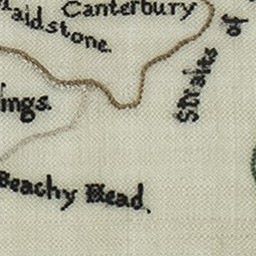 Canterbury
aidstone.
Straits of
ings.
Beachy Head.